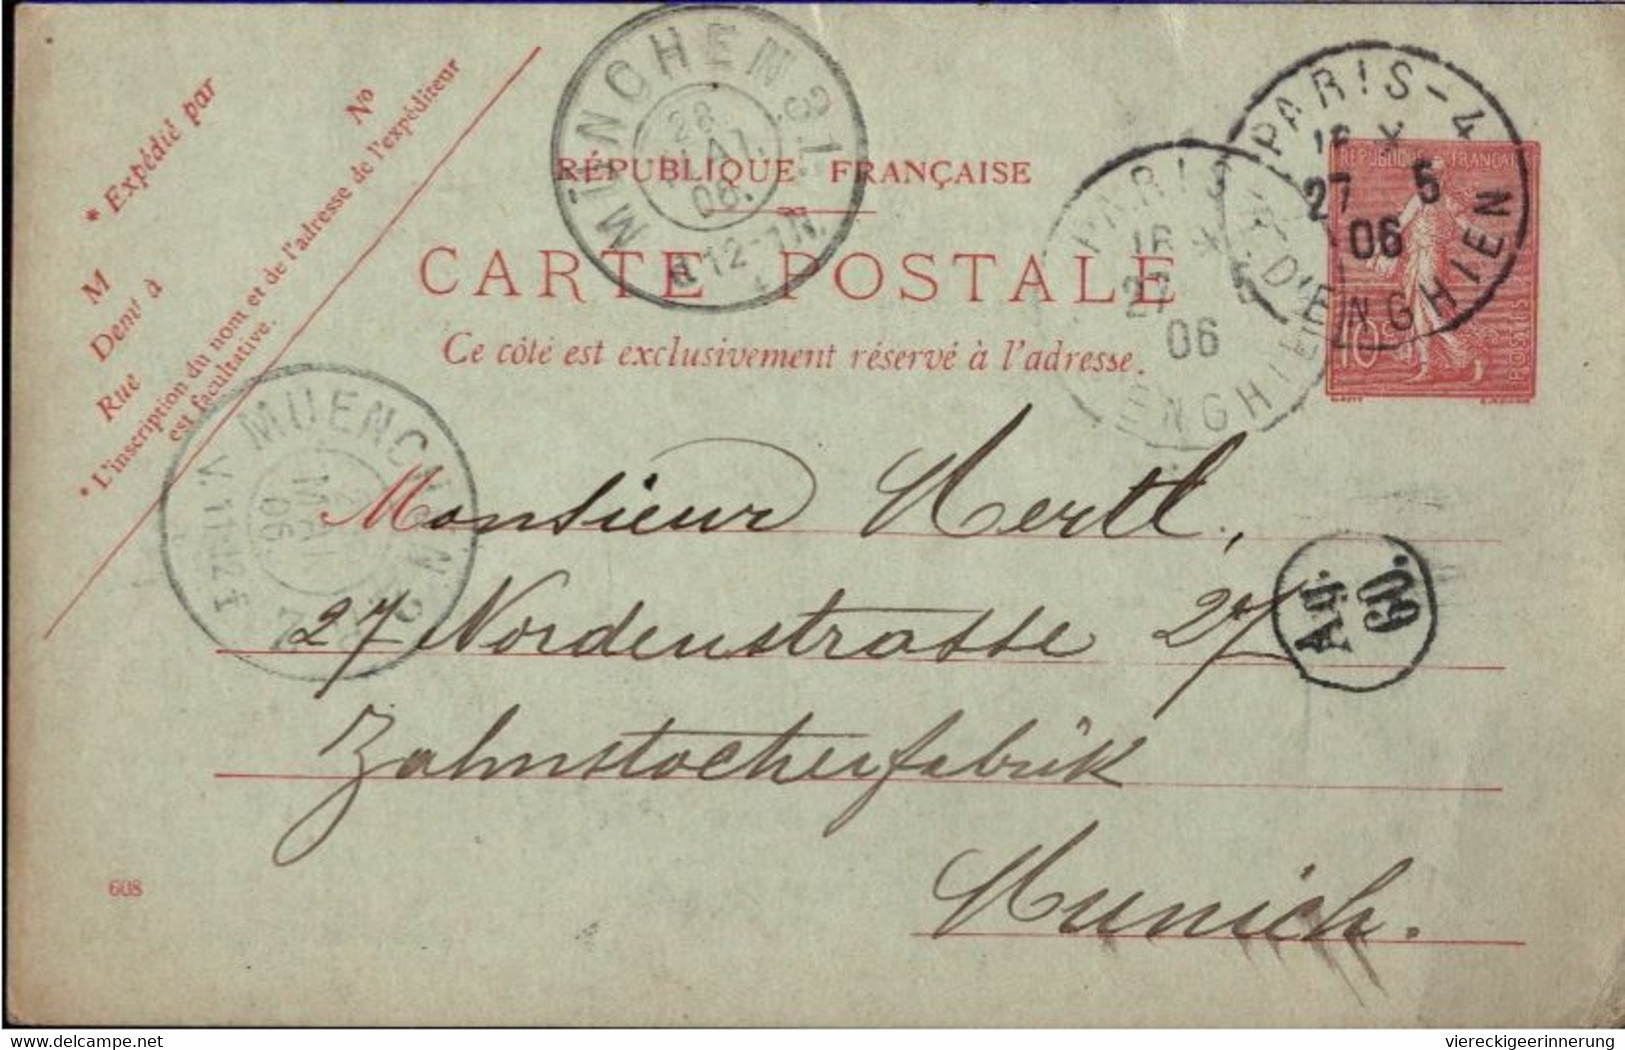 * Expédié par
N°
M
Dem<sup>t</sup> à
Rue
* L'inscription du nom et de l'adresse de l'expéditeur
est facultative.
MÜNCHEN 31.
28
MAI.
06.
12-1 N.
RÉPUBLIQUE FRANÇAISE
CARTE POSTALE
Ce côté est exclusivement réservé à l'adresse.
PARIS
18 *
27
06
D'ENGHIEN
PARIS-4
27 5
06
R. D'ENGHIEN
RÉPUBLIQUE FRANÇAISE
10
POSTES
MUENCHEN 2
MAI
06.
V. 11-12
Monsieur Hertl,
27 Nordenstrasse 27
Zahnstocherfabrik
Munich.
Ag.
60.
608
delcampe.net
viereckigeerinnerung